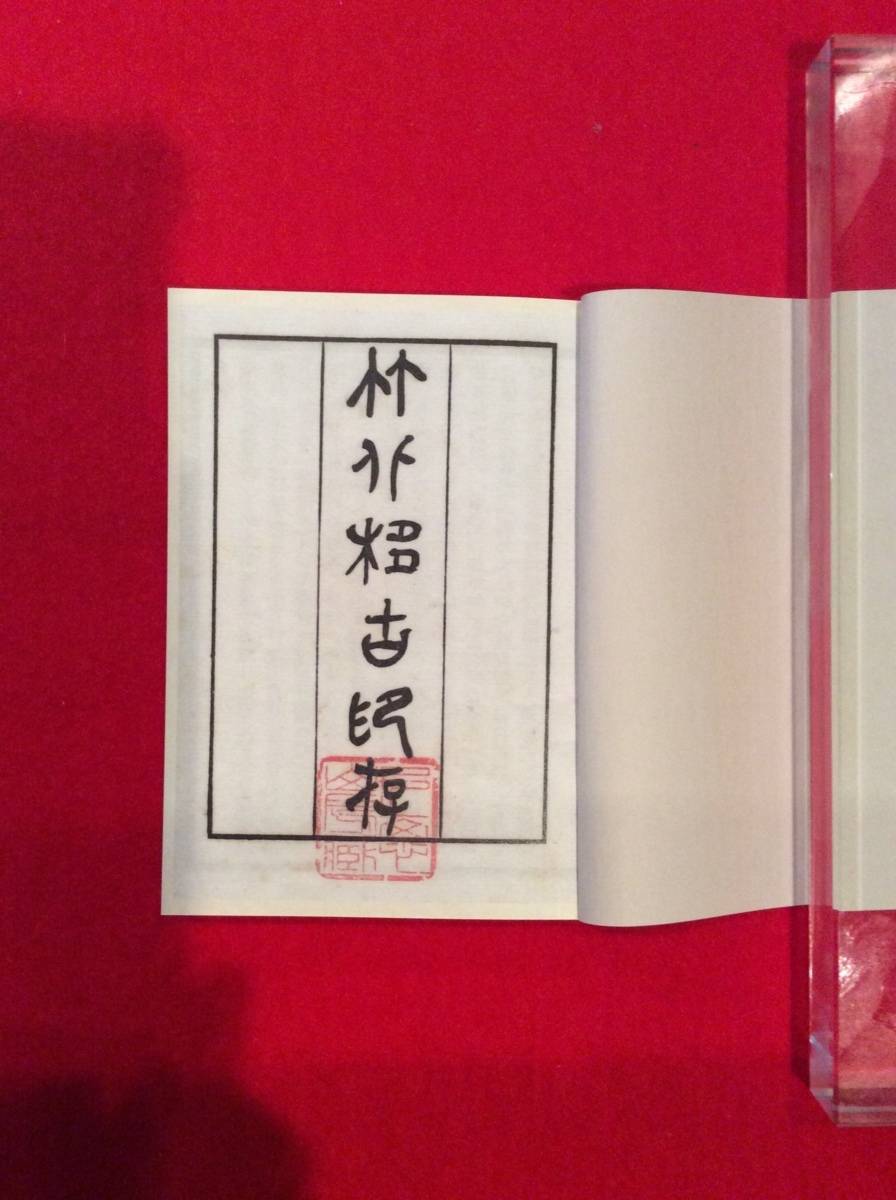 竹北栘古印存